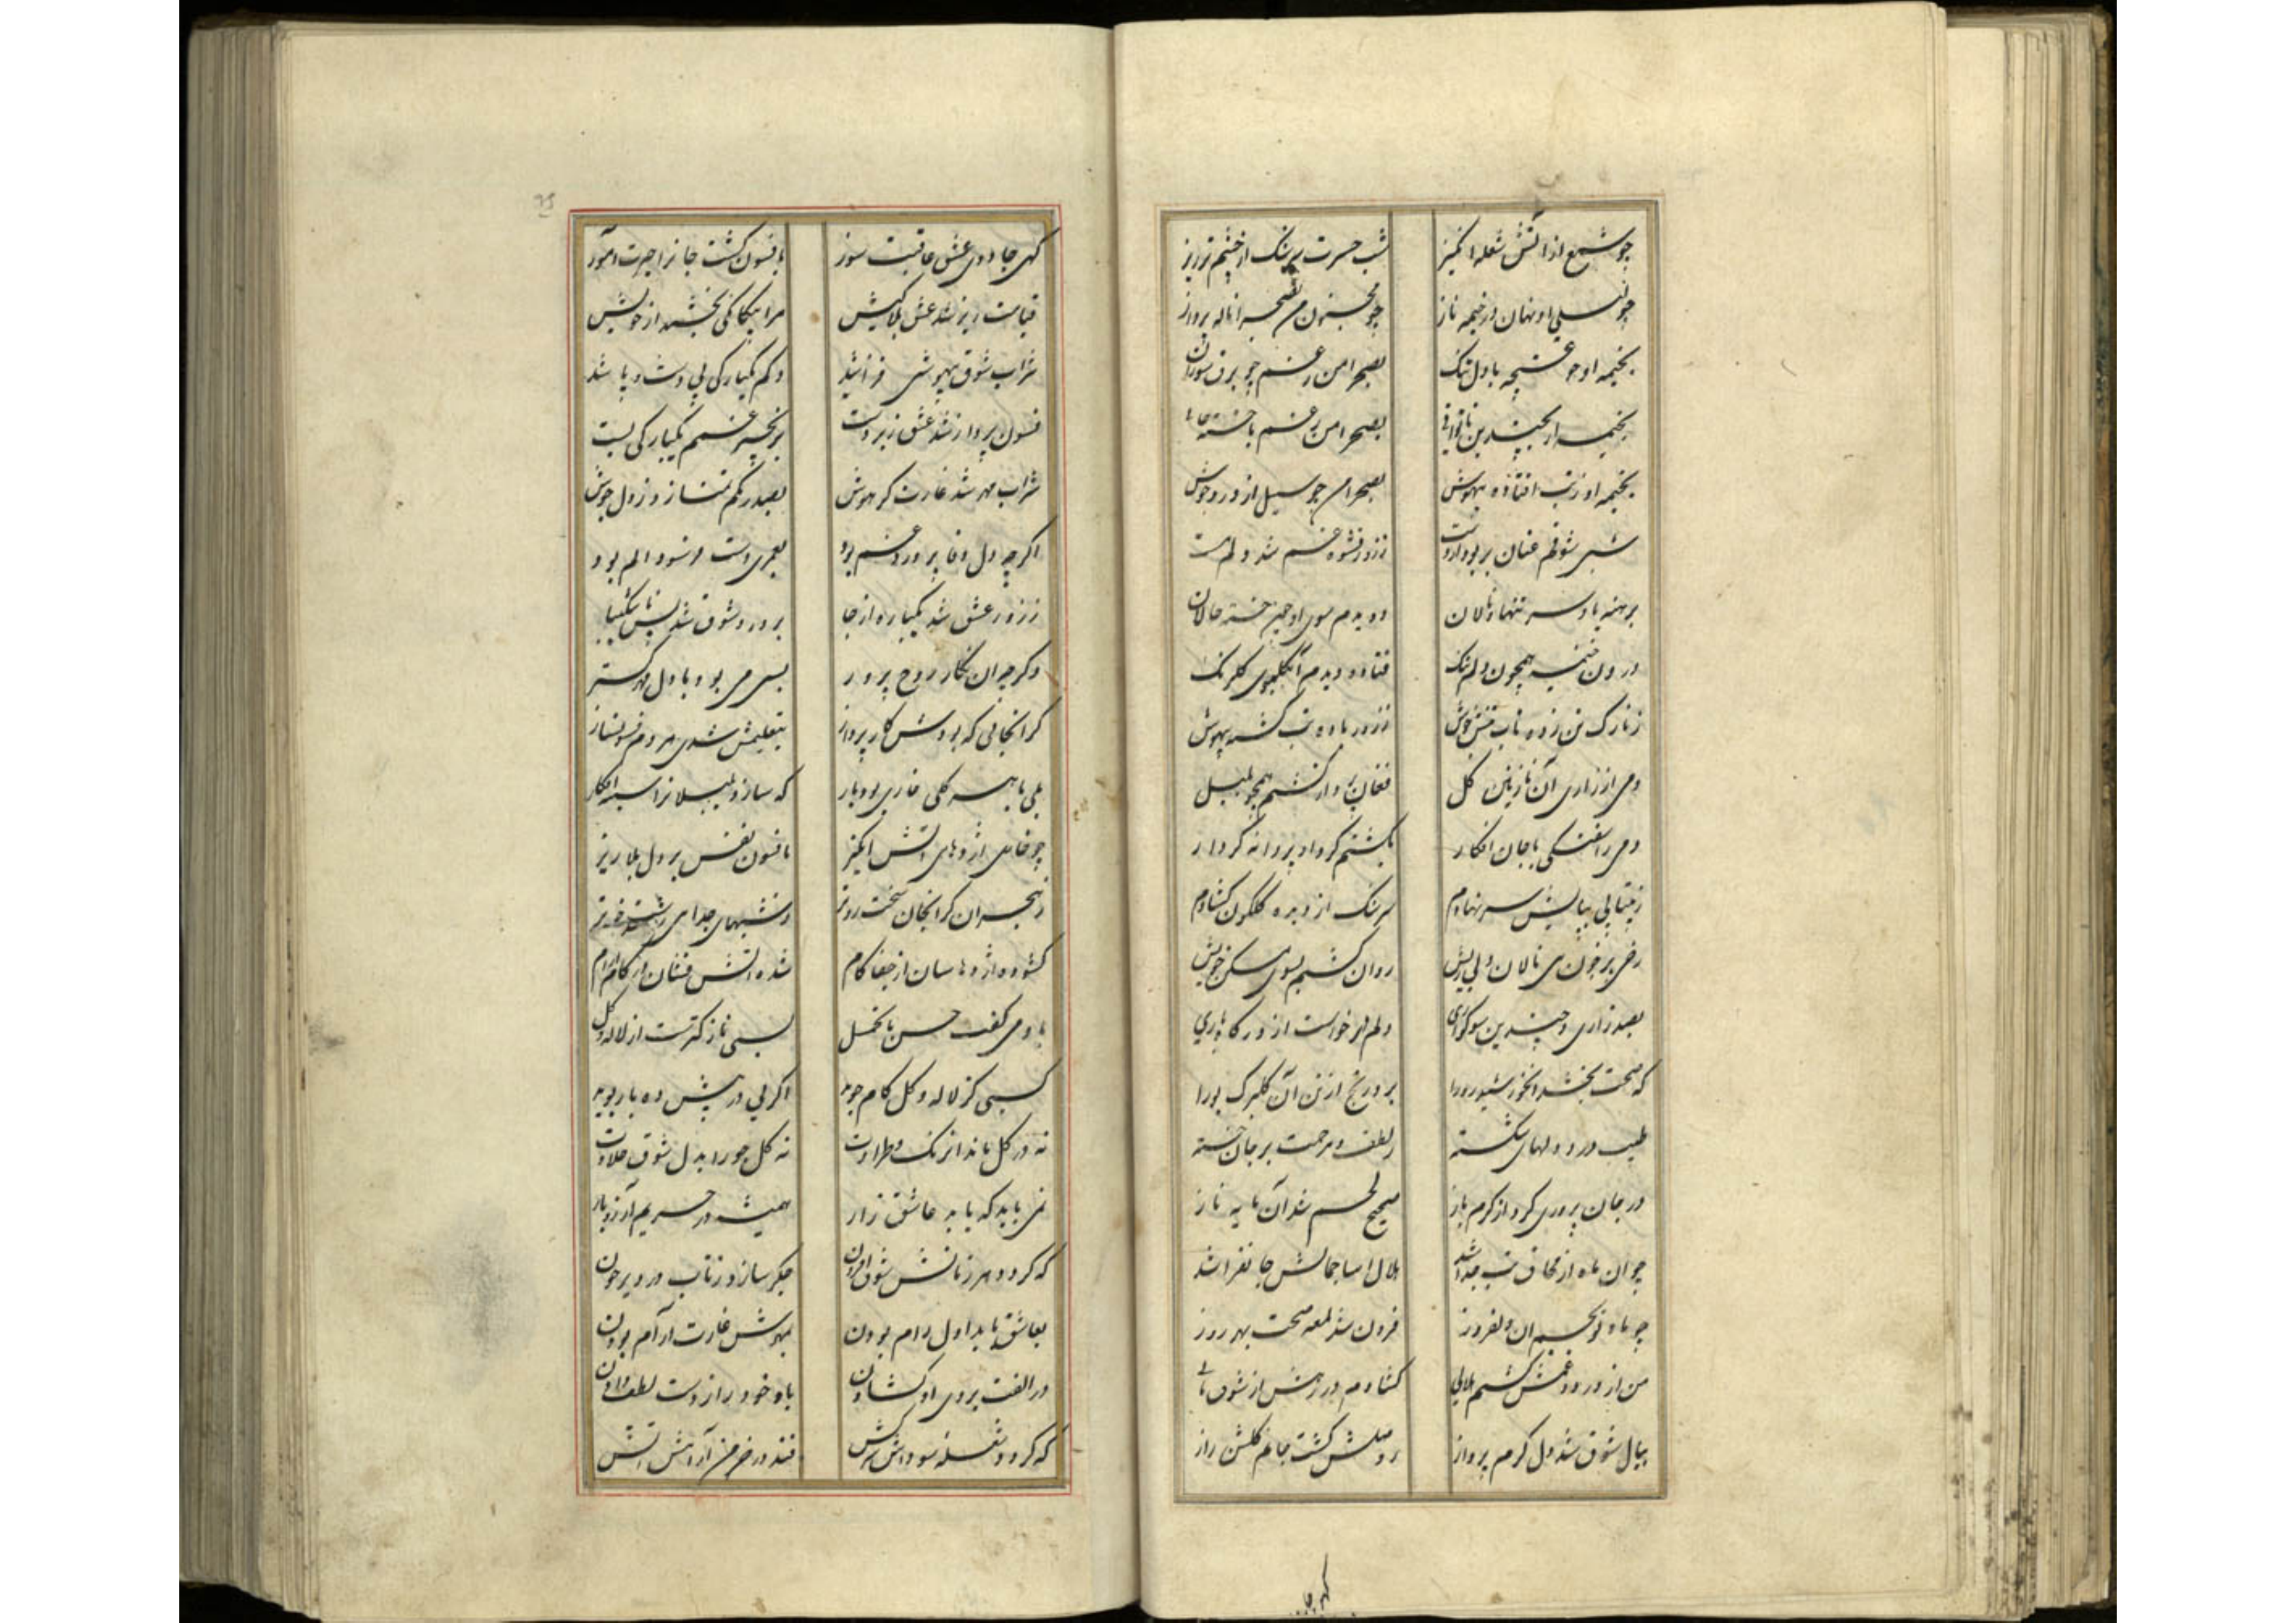 چو شمع از آتش شعله انگیز شب حسرت سرشک از چشم ترریز
چو لیلی او نهان در خیمه ناز چو مجنون من بصحرا ناله پرداز
بخیمه او چو غنچه با دل تنک بصحرا من ز غم چو برق سوزان
بخیمه او بچندین ناتوانی بصحرا من ز غم با خسته جانی
بخیمه او ز تب افتاده بیهوش بصحرا من چو سیل از درد در جوش
شبی شوقم عنان بربود از دست ز زور نشوه غم شد دلم مست
برهنه پا و سر تنها و نالان دویدم سوی او چون خسته حالان
درون خیمه همچون دلم تنک فتاده دیدم آن گلبوی گلرنک
ز نازک تن زده تاب تبش جوش ز زور باده تب گشته بیهوش
دمی از زاری آن نازنین گل فغان پرداز گشتم همچو بلبل
دمی ز آشفتگی با جان افکار بگشتم گرد او پروانه کردار
ز بیتابی بپایش سر نهادم سرشک از دیده گلگون گشادم
رخی پر خون می نالان دلی ریش روان گشتم بسوی مسکن خویش
بصد زاری و چندین سوگواری دلم میخواست از درگاه باری
که صحت بخشد آن خورشید رو را برد رنج از تن آن گلبرک بو را
طبیب درد دلهای شکسته ز لطف و مرحمت بر جان خسته
در جان پروری کرد از کرم باز صحیح الجسم شد آن مایه ناز
چو آن ماه از محاق تب جدا شد هلال آسا جمالش جانفزا شد
چو ماه نو بجسم آن دلفروز فزون شد لمعه صحت بهر روز
من از درد غمش گشتم هلالی گشادم در رهش از شوق بالی
ببال شوق شد دل گرم پرواز ز وصلش گشت جانم گلشن راز
کهی جا
گهی جادوی عشق عاقبت سوز بافسون گشت جانرا حیرت آموز
قیامت ریز شد عشق بلا کیش مرا بیگانگی بخشید از خویش
شراب شوق بیهوشی فزا شد دلم یکبارگی بی دست و پا شد
فسون پرداز شد عشق زبردست بزنجیر غمم یکبارگی بست
شراب مهر شد غارتگر هوش بصد رنگم تمنا زد ز دل جوش
اگرچه دل وفا پرورد غم بود بعمری دست فرسود الم بود
ز زور عشق شد یکباره از جا بدرد شوق شد بس ناشکیبا
وگرچه آن نگار روح پرور بسی می بود با دل مهرگستر
گرانجانی که بودش کارپرداز بتعلیمش شدی هر دم فسونساز
بلی با هر گلی خاری بود یار که سازد بلبلانرا سینه افکار
چو خاری اژدهای آتش انگیز بافسون نفس بر دل بلا ریز
ز هجران گرانجان سخت روتر
گشوده اژدهاسان از جفا کام شده آتش فشان در کام آرام
باو می گفت حسن با تحمل بسی نازکترست از لاله و گل
کسی کز لاله و گل کام جوید اگر بی در پیش ده بار بوید
نه در گل ماند از رنک و طراوت نه گل جو را بدل شوق حلاوت
نمی باید که یابد عاشق زار همیشه در حریم آرزو بار
که گردد هر زمانش شوق افزون جگر سازد ز تاب درد پرخون
بعاشق باید اول رام بودن بهوشش غارت آرام بودن
در الفت بروی او گشادن باو خود را ز دست لطف دادن
که گردد شعله سوداش سرکش فتد در خرمن آرامش آتش